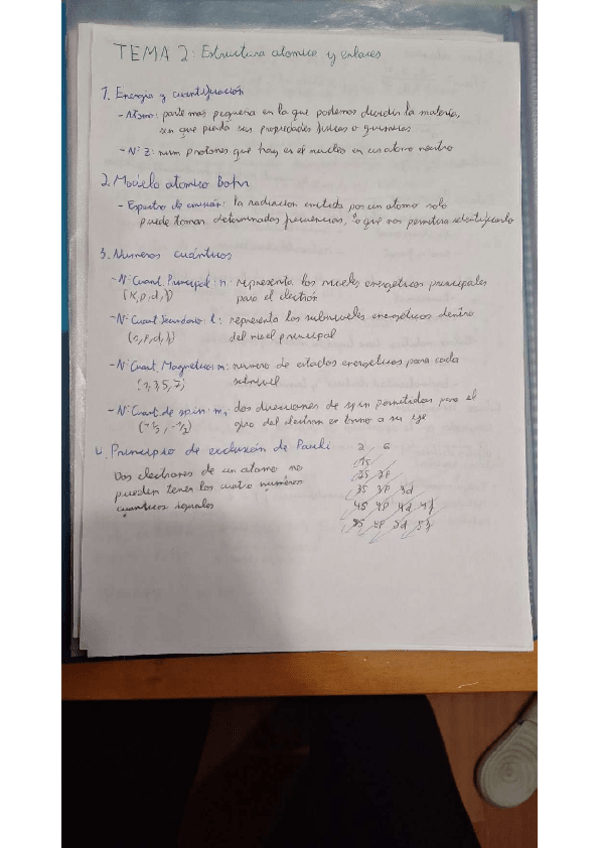 TEMA 2: Estructura atomica y enlaces
1. Energía y cuantificación
- Atomo: parte mas pequeña en la que podemos dividir la materia,
sin que pierda sus propiedades fisicas o quimicas
- Nº Z: num protones que hay en el nucleo en un atomo neutro
2. Modelo atomico Bohr
- Espectro de emisión: la radiacion emitida por un atomo solo
puede tomar determinadas frecuencias, lo que nos permitira identificarlo
3. Numeros cuánticos
- Nº Cuant. Principal: n: representa los niveles energéticos principales
para el electrón
- Nº Cuant Secundario: l: representa los subniveles energéticos dentro
(s, p, d, f) del nivel principal
- Nº Cuant. Magnetico: m: numero de estados energéticos para cada
(1, 3, 5, 7) subnivel
- Nº Cuant. de spin: ms: dos direcciones de spin permitidas para el
(+1/2, -1/2) giro del electron en torno a su eje
4. Principio de exclusión de Pauli
2 6
Dos electrones de un atomo no
pueden tener los cuatro numéros
cuanticos iguales
1s
2s 2p
3s 3p 3d
4s 4p 4d 4f
5s 5p 5d 5f